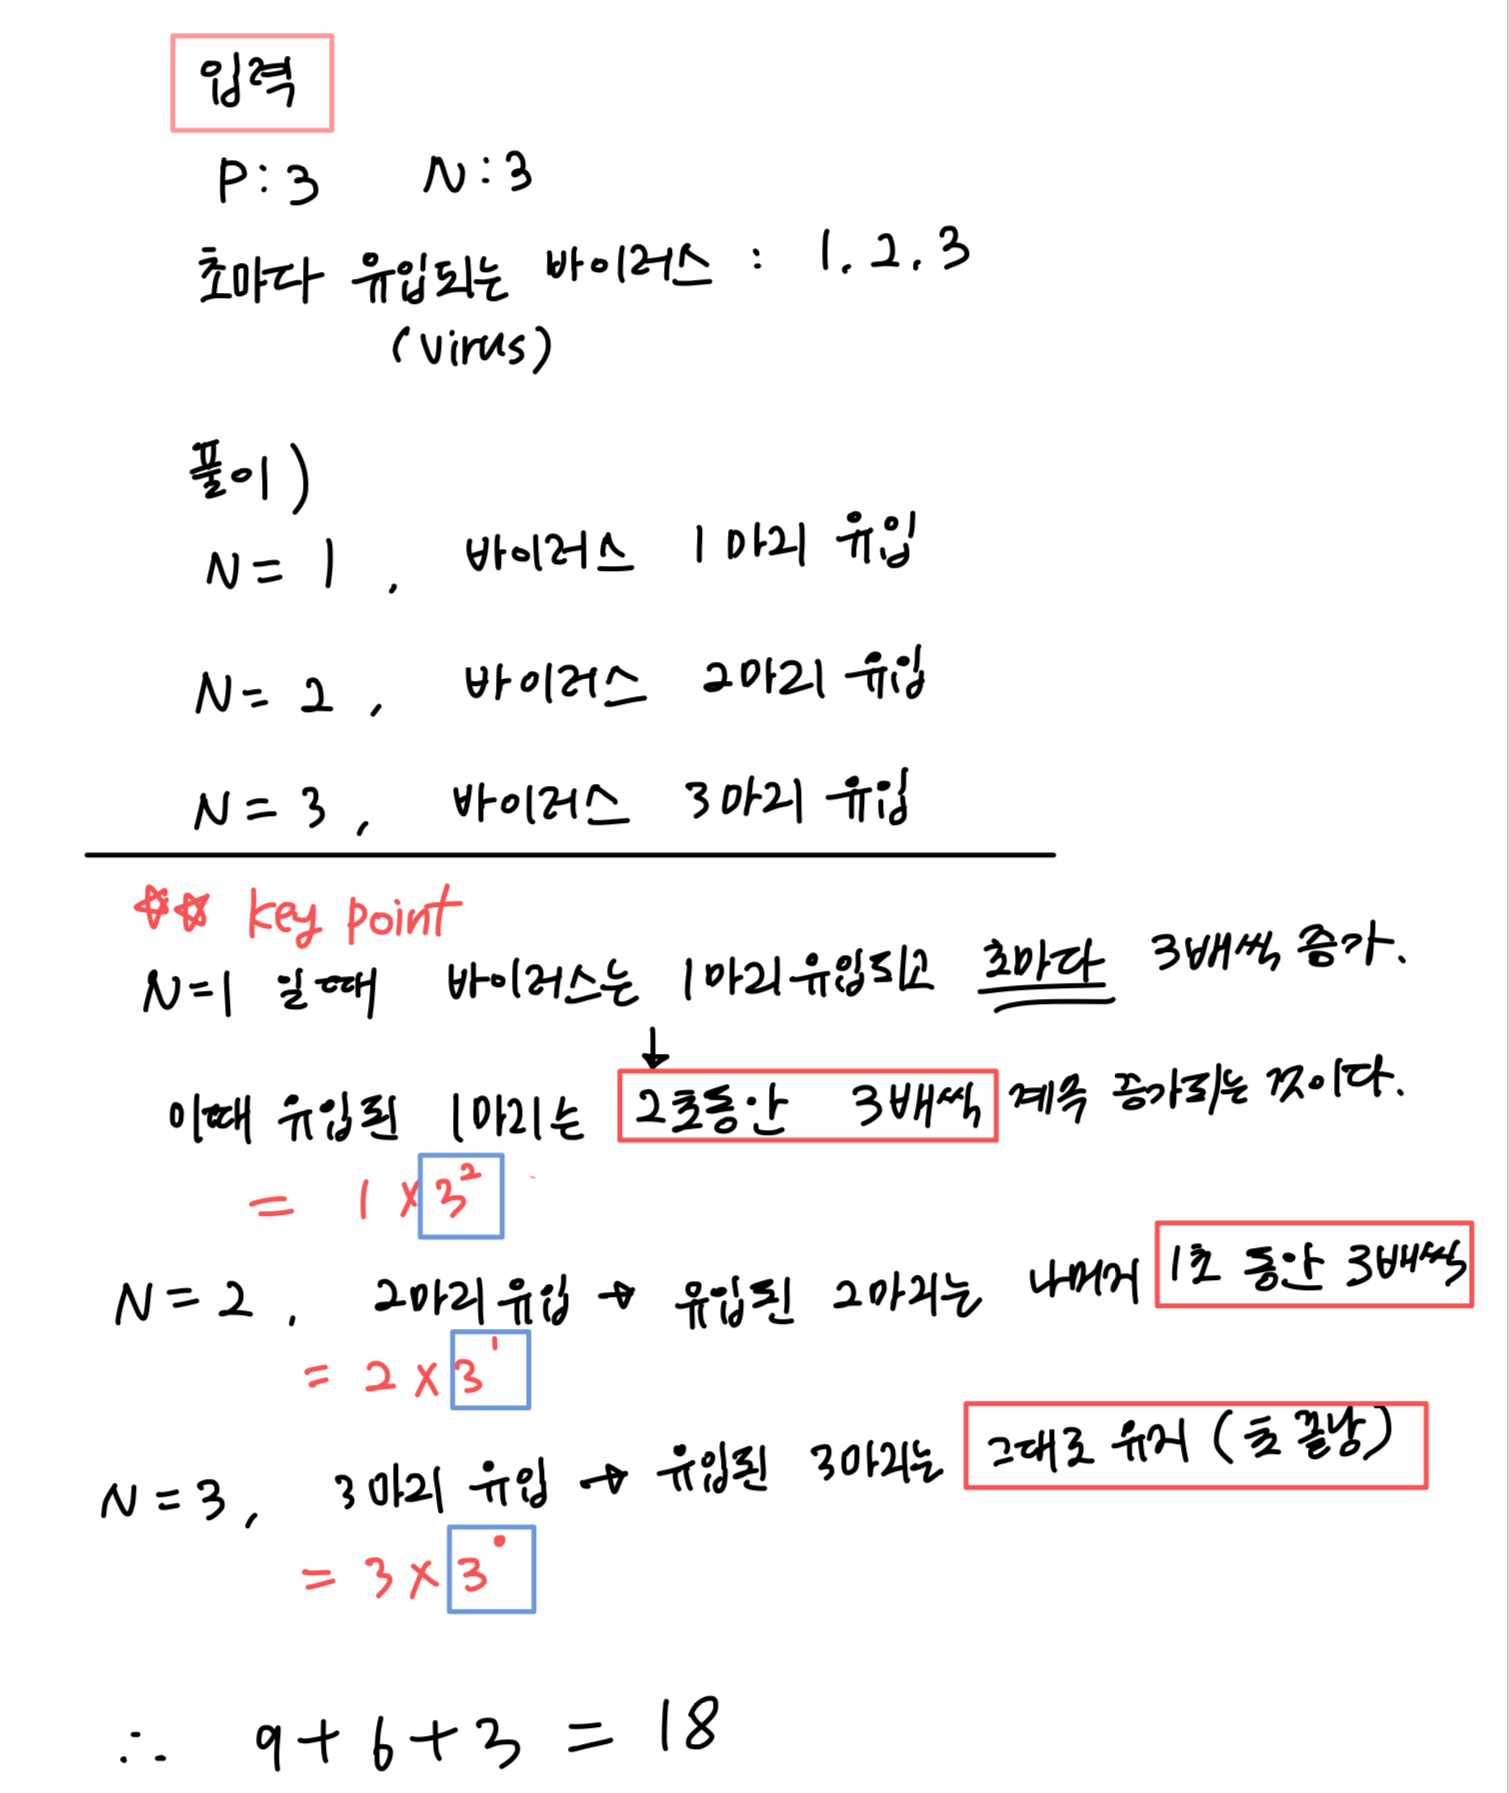 입력
P:3 N:3
초마다 유입되는 바이러스 : 1. 2. 3
(virus)
풀이)
N=1, 바이러스 1마리 유입
N=2, 바이러스 2마리 유입
N=3, 바이러스 3마리 유입
☆☆ key point
N=1 일때 바이러스는 1마리유입되고 초마다 3배씩 증가.
↓
이때 유입된 1마리는 2초동안 3배씩 계속 증가되는 것이다.
= 1 × 3²
N=2, 2마리유입 → 유입된 2마리는 나머지 1초 동안 3배씩
= 2 × 3¹
N=3, 3마리 유입 → 유입된 3마리는 그대로 유지 (초 끝남)
= 3 × 3⁰
∴ 9+6+3 = 18